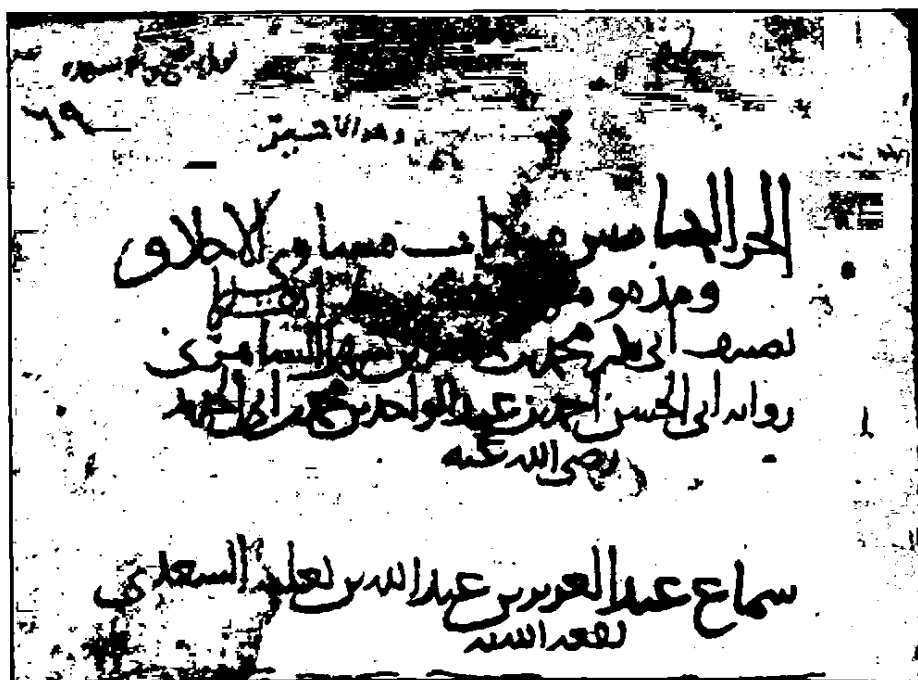 ٦٩
وهو الاخير
الجزء الخامس من كتاب مساوئ الاخلاق
ومذمومها
تصنيف ابي بكر محمد بن جعفر بن سهل السامري
رواية ابي الحسن احمد بن عبد الواحد بن محمد بن ابي الحديد
رضي الله عنه
سماع عبد العزيز بن عبد الله بن ثعلبة السعدي
نفعه الله به